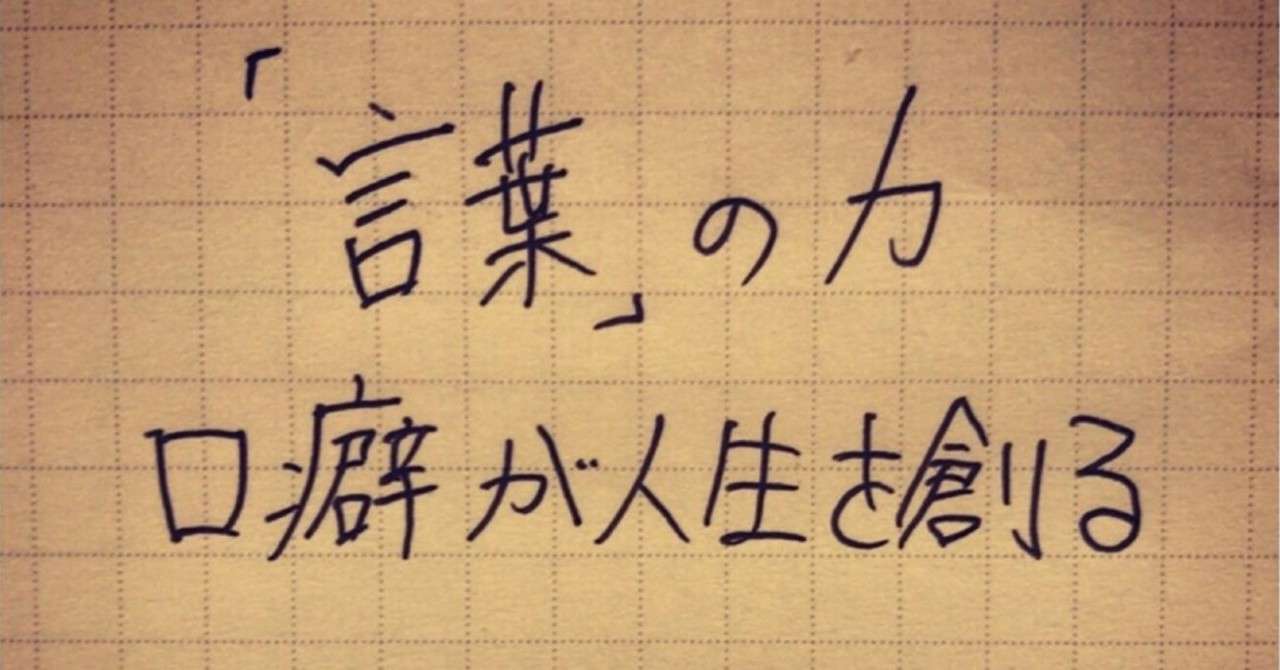 「言葉」の力
口癖が人生を創る